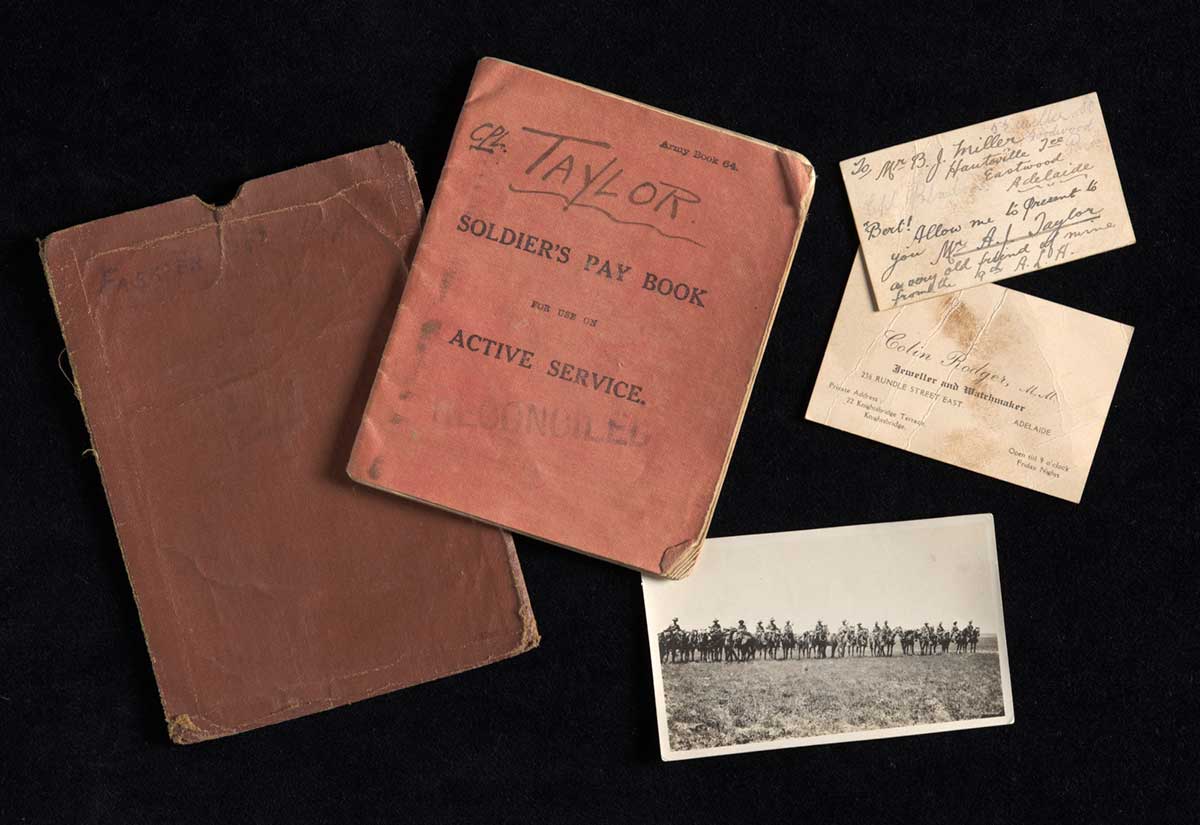 Army Book 64.
CPL. TAYLOR
SOLDIER'S PAY BOOK
FOR USE ON
ACTIVE SERVICE.
RECONCILED
To Mr B. J. Miller
Hautville Tce
Eastwood
Adelaide
Bert! Allow me to present to
you Mr A. J. Taylor
a very old friend of mine
from the 9th A.L.H.
Colin Rodger, M.M
Jeweller and Watchmaker
256 RUNDLE STREET EAST
ADELAIDE
Private Address:
22 Knightsbridge Terrace,
Knightsbridge.
Open till 9 o'clock
Friday Nights